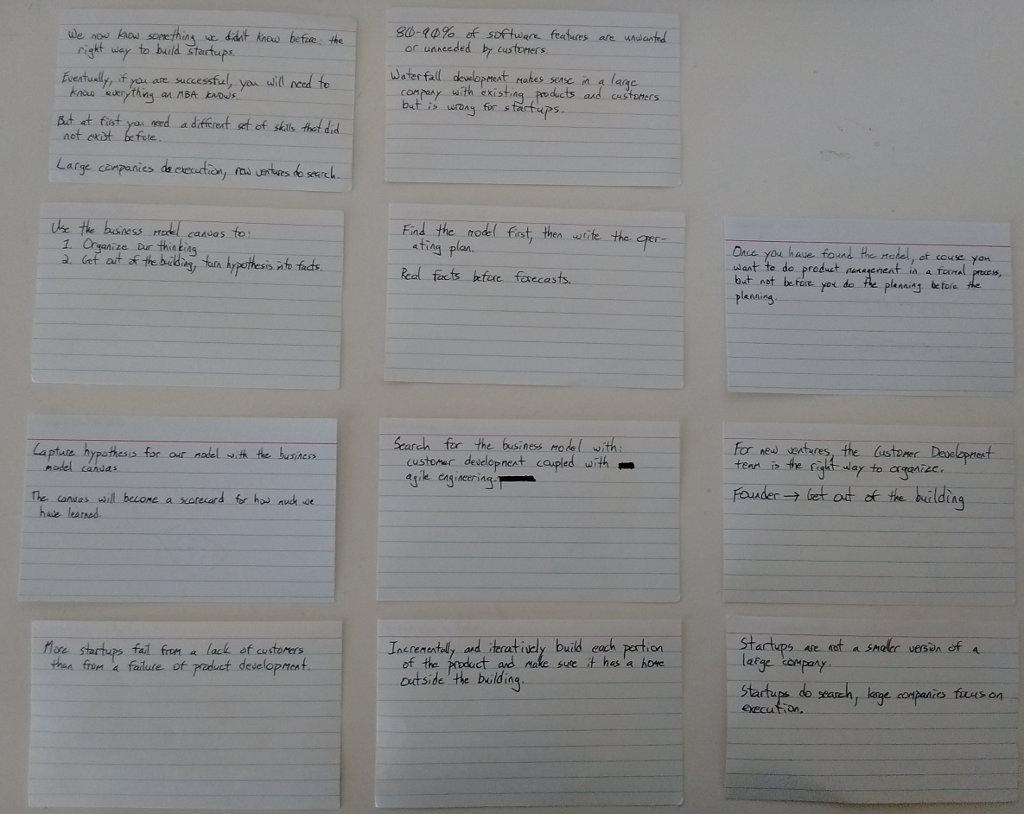 We now know something we didn't know before: the
right way to build startups.
Eventually, if you are successful, you will need to
know everything an MBA knows.
But at first you need a different set of skills that did
not exist before.
Large companies do execution, new ventures do search.
80-90% of software features are unwanted
or unneeded by customers.
Waterfall development makes sense in a large
company with existing products and customers
but is wrong for startups.
Use the business model canvas to:
1. Organize our thinking
2. Get out of the building, turn hypothesis into facts.
Find the model first, then write the oper-
ating plan.
Real facts before forecasts.
Once you have found the model, of couse you
want to do product management in a formal process,
but not before you do the planning before the
planning.
Capture hypothesis for our model with the business
model canvas
The canvas will become a scorecard for how much we
have learned.
Search for the business model with:
customer development coupled with
agile engineering.
For new ventures, the Customer Development
team is the right way to organize.
Founder → Get out of the building
More startups fail from a lack of customers
than from a failure of product development.
Incrementally and iteratively build each portion
of the product and make sure it has a home
outside the building.
Startups are not a smaller version of a
large company.
Startups do search, large companies focus on
execution.